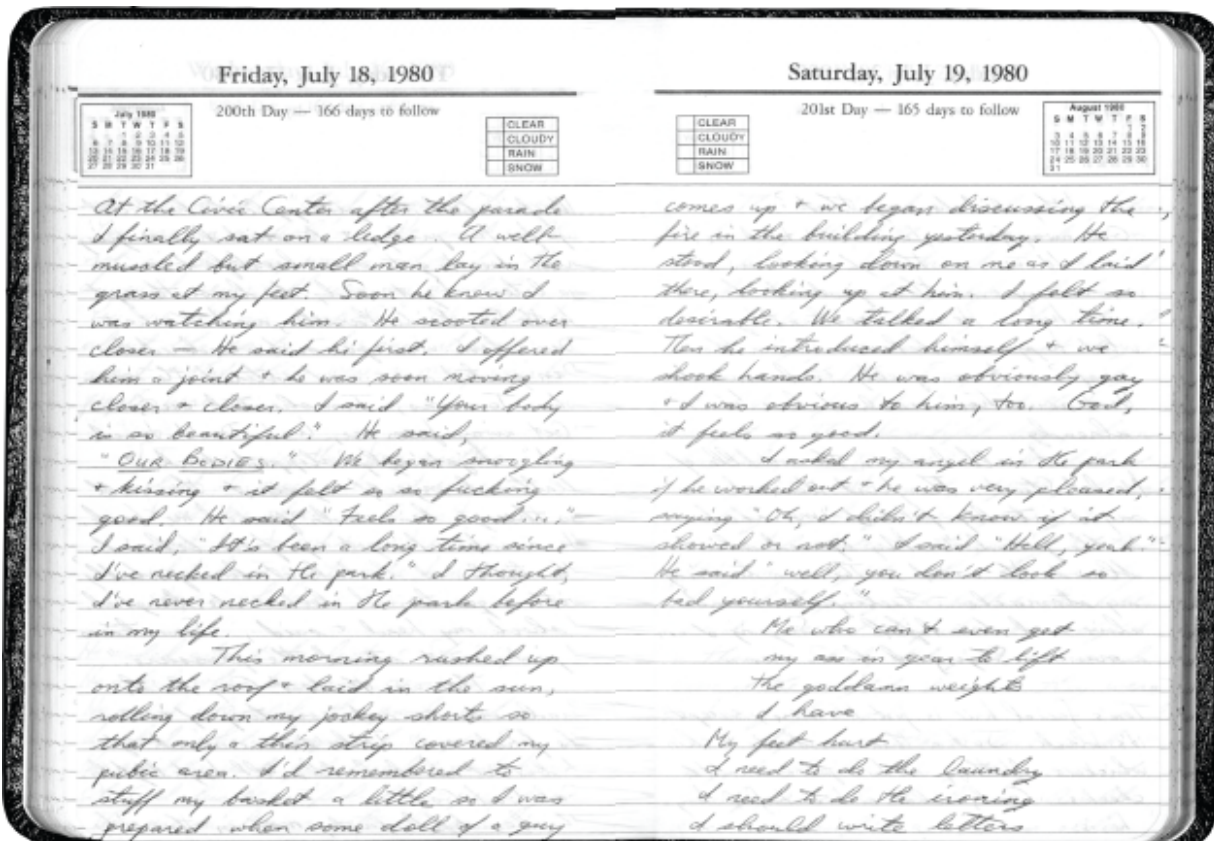 Friday, July 18, 1980
200th Day — 166 days to follow
July 1980
S M T W T F S
1 2 3 4 5
6 7 8 9 10 11 12
13 14 15 16 17 18 19
20 21 22 23 24 25 26
27 28 29 30 31
CLEAR
CLOUDY
RAIN
SNOW
At the Civic Center after the parade
I finally sat on a ledge. A well
muscled but small man lay in the
grass at my feet. Soon he knew I
was watching him. He scooted over
closer — He said hi first. I offered
him a joint & he was soon moving
closer & closer. I said "Your body
is so beautiful." He said,
"OUR BODIES." We began snuggling
& kissing & it felt so so fucking
good. He said "Feels so good...."
I said, "It's been a long time since
I've necked in the park." I thought,
I've never necked in the park before
in my life.
This morning rushed up
onto the roof & laid in the sun,
rolling down my jockey shorts so
that only a thin strip covered my
pubic area. I'd remembered to
stuff my basket a little so I was
prepared when some doll of a guy
Saturday, July 19, 1980
201st Day — 165 days to follow
CLEAR
CLOUDY
RAIN
SNOW
August 1980
S M T W T F S
1 2
3 4 5 6 7 8 9
10 11 12 13 14 15 16
17 18 19 20 21 22 23
24 25 26 27 28 29 30
31
comes up & we began discussing the
fire in the building yesterday. He
stood, looking down on me as I laid
there, looking up at him. I felt so
desirable. We talked a long time.
Then he introduced himself & we
shook hands. He was obviously gay
& I was obvious to him, too. God,
it feels so good.
I asked my angel in the park
if he worked out & he was very pleased,
saying "Oh, I didn't know if it
showed or not." I said "Hell, yeah."
He said "well, you don't look so
bad yourself."
Me who can't even get
my ass in gear to lift
the goddamn weights
I have
My feet hurt
I need to do the laundry
I need to do the ironing
I should write letters